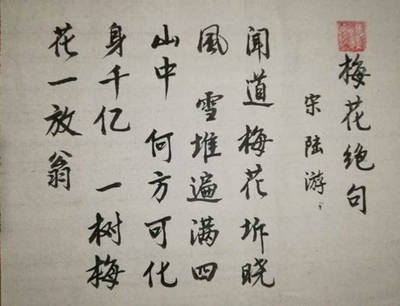 梅花绝句
宋陆游
闻道梅花坼晓
風雪堆遍满四
山中何方可化
身千亿一树梅
花一放翁